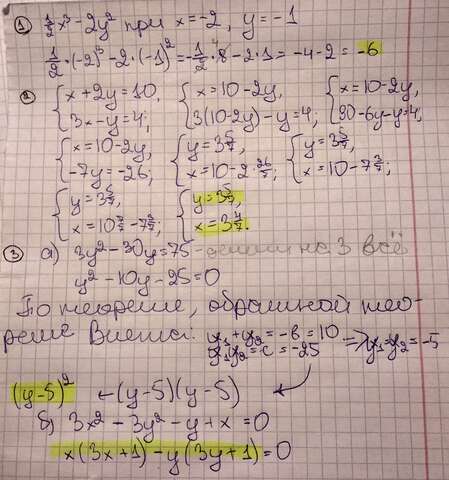 ① 1/2 x³ - 2y² при x = -2, y = -1
1/2 · (-2)³ - 2 · (-1)² = -1/2 · 8 - 2 · 1 = -4 - 2 = -6
② { x + 2y = 10, { x = 10 - 2y, { x = 10 - 2y,
3x - y = 4; 3(10 - 2y) - y = 4; 30 - 6y - y = 4;
{ x = 10 - 2y, { y = 3 5/7, { y = 3 5/7,
-7y = -26; x = 10 - 2 · 26/7; x = 10 - 7 3/7;
{ y = 3 5/7, { y = 3 5/7,
x = 10 - 7 3/7; x = 3 4/7.
③ а) 3y² - 30y = 75 - делим на 3 всё
y² - 10y - 25 = 0
По теореме, обратной тео-
реме Виета:
y₁ + y₂ = -в = 10
y₁y₂ = c = -25 => y₁ = y₂ = -5
(y-5)² ← (y-5)(y-5)
б) 3x² - 3y² - y + x = 0
x(3x+1) - y(3y+1) = 0